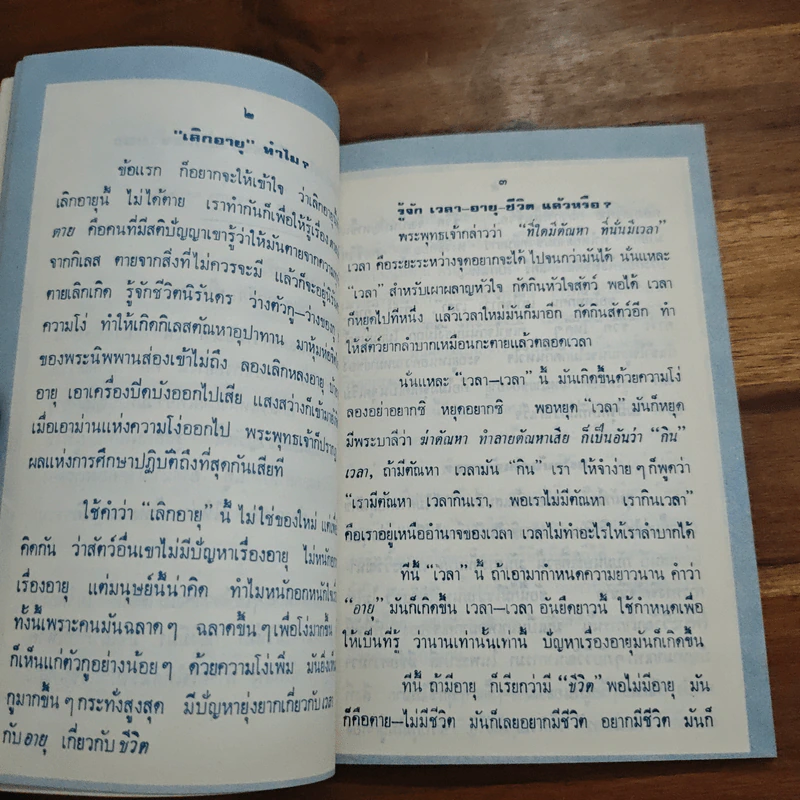 ๒
"เลิกอายุ" ทำไม?
ข้อแรก ก็อยากจะให้เข้าใจ ว่าเลิกอายุ
เลิกอายุนี้ ไม่ได้ตาย เราทำกันก็เพื่อให้รู้เรื่อง
ตาย คือคนที่มีสติปัญญาเขารู้ว่าให้มันตายจาก
จากกิเลส ตายจากสิ่งที่ไม่ควรจะมี แล้วก็จะอยู่
ตายเลิกเกิด รู้จักชีวิตนิรันดร ว่างตัวกู—ว่างของกู
ความโง่ ทำให้เกิดกิเลสตัณหาอุปาทาน มาหุ้มห่อ
ของพระนิพพานส่องเข้าไม่ถึง ลองเลิกหลงอายุ
อายุ เอาเครื่องปิดบังออกไปเสีย แสงสว่างก็เข้ามา
เมื่อเอาม่านแห่งความโง่ออกไป พระพุทธเจ้าก็ปรากฏ
ผลแห่งการศึกษาปฏิบัติถึงที่สุดกันเสียที
ใช้คำว่า "เลิกอายุ" นี้ ไม่ใช่ของใหม่
คิดกัน ว่าสัตว์อื่นเขาไม่มีปัญหาเรื่องอายุ ไม่หนักอก
เรื่องอายุ แต่มนุษย์นี้น่าคิด ทำไมหนักอกหนักใจ
ทั้งนี้เพราะคนมันฉลาดๆ ฉลาดขึ้นๆเพื่อโง่มากขึ้น
ก็เห็นแก่ตัวกูอย่างน้อยๆ ด้วยความโง่เพิ่ม
กูมากขึ้นๆกระทั่งสูงสุด มีปัญหายุ่งยากเกี่ยวกับเวลา
กับอายุ เกี่ยวกับชีวิต
๓
รู้จัก เวลา—อายุ—ชีวิต แล้วหรือ?
พระพุทธเจ้ากล่าวว่า "ที่ใดมีตัณหา ที่นั่นมีเวลา"
เวลา คือระยะระหว่างจุดอยากจะได้ ไปจนกว่ามันได้ นั่นแหละ
"เวลา" สำหรับเผาผลาญหัวใจ กัดกินหัวใจสัตว์ พอได้ เวลา
ก็หยุดไปทีหนึ่ง แล้วเวลาใหม่มันก็มาอีก กัดกินสัตว์อีก ทำ
ให้สัตว์ยากลำบากเหมือนกะตายแล้วตลอดเวลา
นั่นแหละ "เวลา—เวลา" นี้ มันเกิดขึ้นด้วยความโง่
ลองอย่าอยากซิ หยุดอยากซิ พอหยุด "เวลา" มันก็หยุด
มีพระบาลีว่า ฆ่าตัณหา ทำลายตัณหาเสีย ก็เป็นอันว่า "กิน"
เวลา, ถ้ามีตัณหา เวลามัน "กิน" เรา ให้จำง่ายๆก็พูดว่า
"เรามีตัณหา เวลากินเรา, พอเราไม่มีตัณหา เรากินเวลา"
คือเราอยู่เหนืออำนาจของเวลา เวลาไม่ทำอะไรให้เราลำบากได้
ทีนี้ "เวลา" นี้ ถ้าเอามากำหนดความยาวนาน คำว่า
"อายุ" มันก็เกิดขึ้น เวลา—เวลา อันยืดยาวนี้ ใช้กำหนดเพื่อ
ให้เป็นที่รู้ ว่านานเท่านั้นเท่านี้ ปัญหาเรื่องอายุมันก็เกิดขึ้น
ทีนี้ ถ้ามีอายุ ก็เรียกว่ามี "ชีวิต" พอไม่มีอายุ มัน
ก็คือตาย—ไม่มีชีวิต มันก็เลยอยากมีชีวิต อยากมีชีวิต มันก็